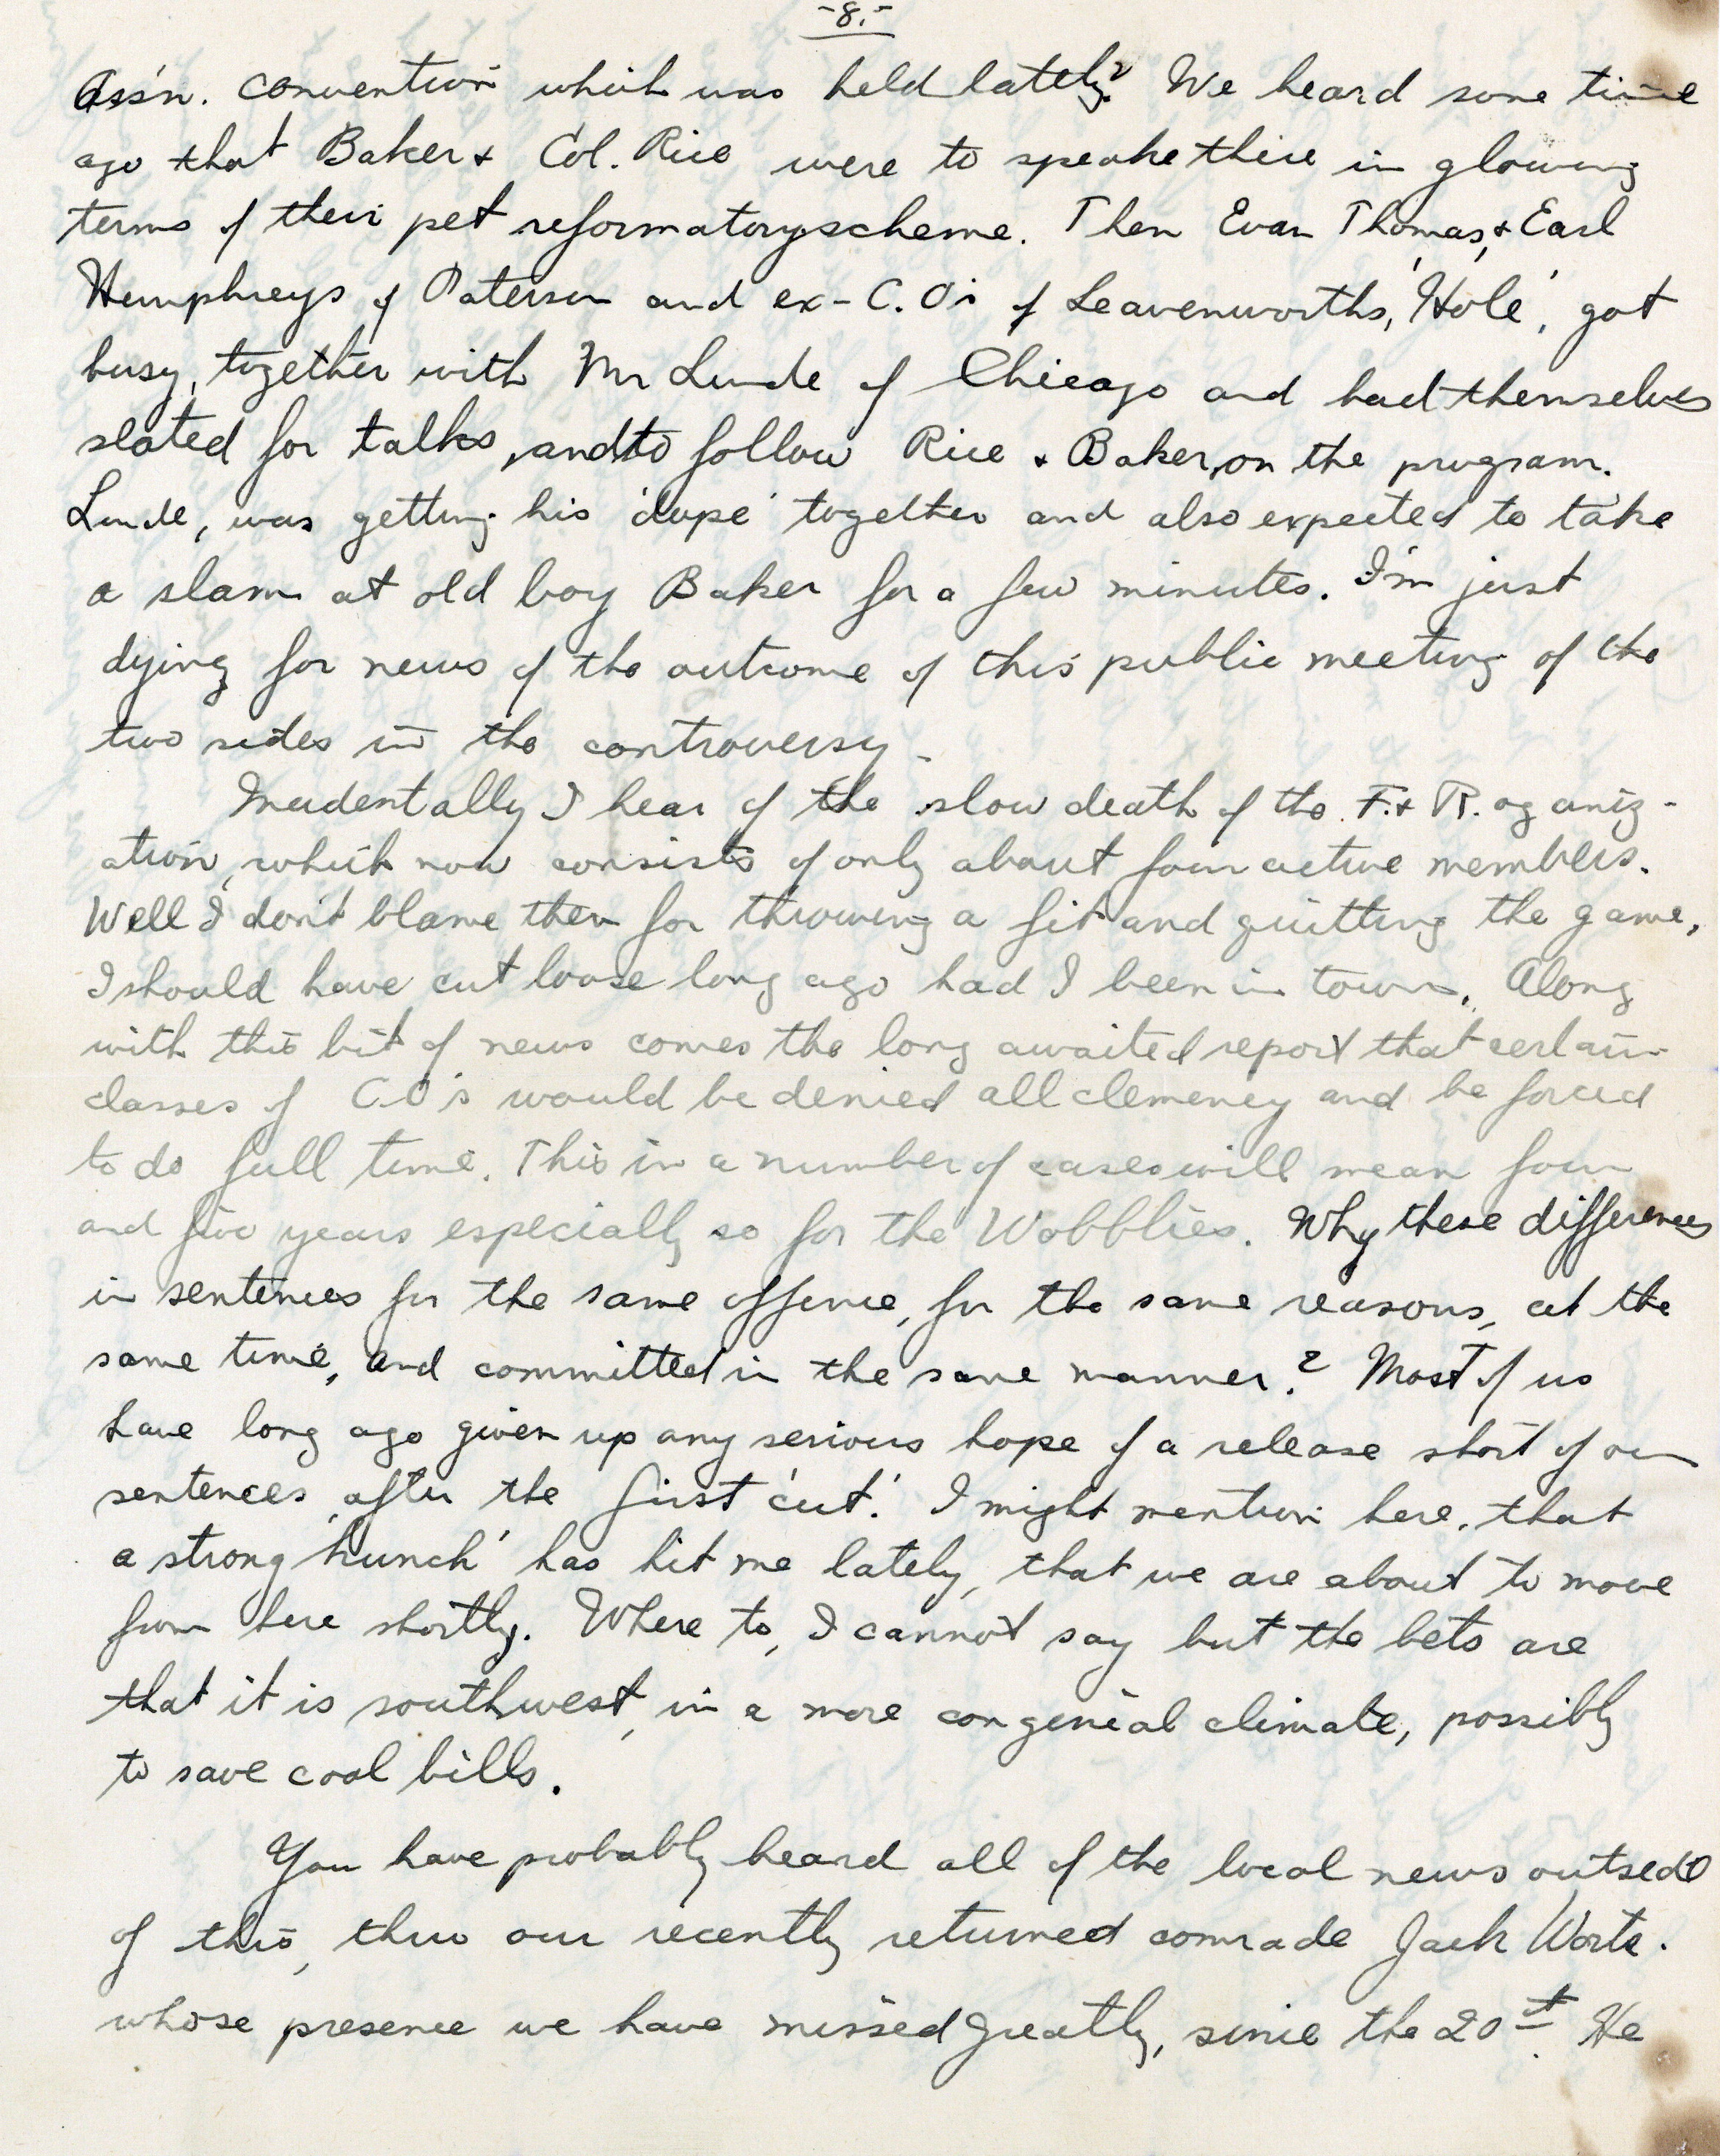 -8.-
Ass'n. convention which was held lately? We heard some time
ago that Baker & Col. Rice were to speake there in glowing
terms of their pet reformatory scheme. Then Evan Thomas, & Earl
Humphreys of Paterson and ex-C.O's of Leavenworths, 'Hole', got
busy, together with Mr Lunde of Chicago and had themselves
slated for talks, and to follow Rice & Baker, on the program.
Lunde, was getting his 'dope' together and also expected to take
a slam at old boy Baker for a few minutes. I'm just
dying for news of the outcome of this public meeting of the
two sides in the controversy.
Incidentally I hear of the slow death of the F. & R. oganiz-
ation, which now consists of only about four active members.
Well I don't blame them for throwing a fit and quitting the game,
I should have cut loose long ago had I been in town. Along
with this bit of news comes the long awaited report that certain
classes of C.O's would be denied all clemency and be forced
to do full time. This in a number of cases will mean four
and five years especially so for the Wobblies. Why these differences
in sentences for the same offence, for the same reasons, at the
same time, and committed in the same manner? Most of us
have long ago given up any serious hope of a release short of our
sentences, after the first 'cut'. I might mention here, that
a strong 'hunch' has hit me lately, that we are about to move
from here shortly. Where to, I cannot say but the bets are
that it is southwest, in a more congenial climate, possibly
to save coal bills.
You have probably heard all of the local news outside
of this, thru our recently returned comrade Jack Worts.
whose presence we have missed greatly, since the 20st. He